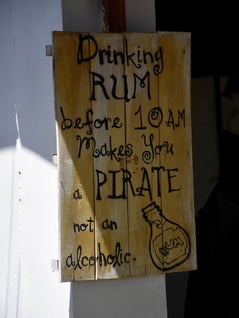 Drinking
RUM
before 10 AM
Makes You
a PIRATE
not an
alcoholic.
RUM